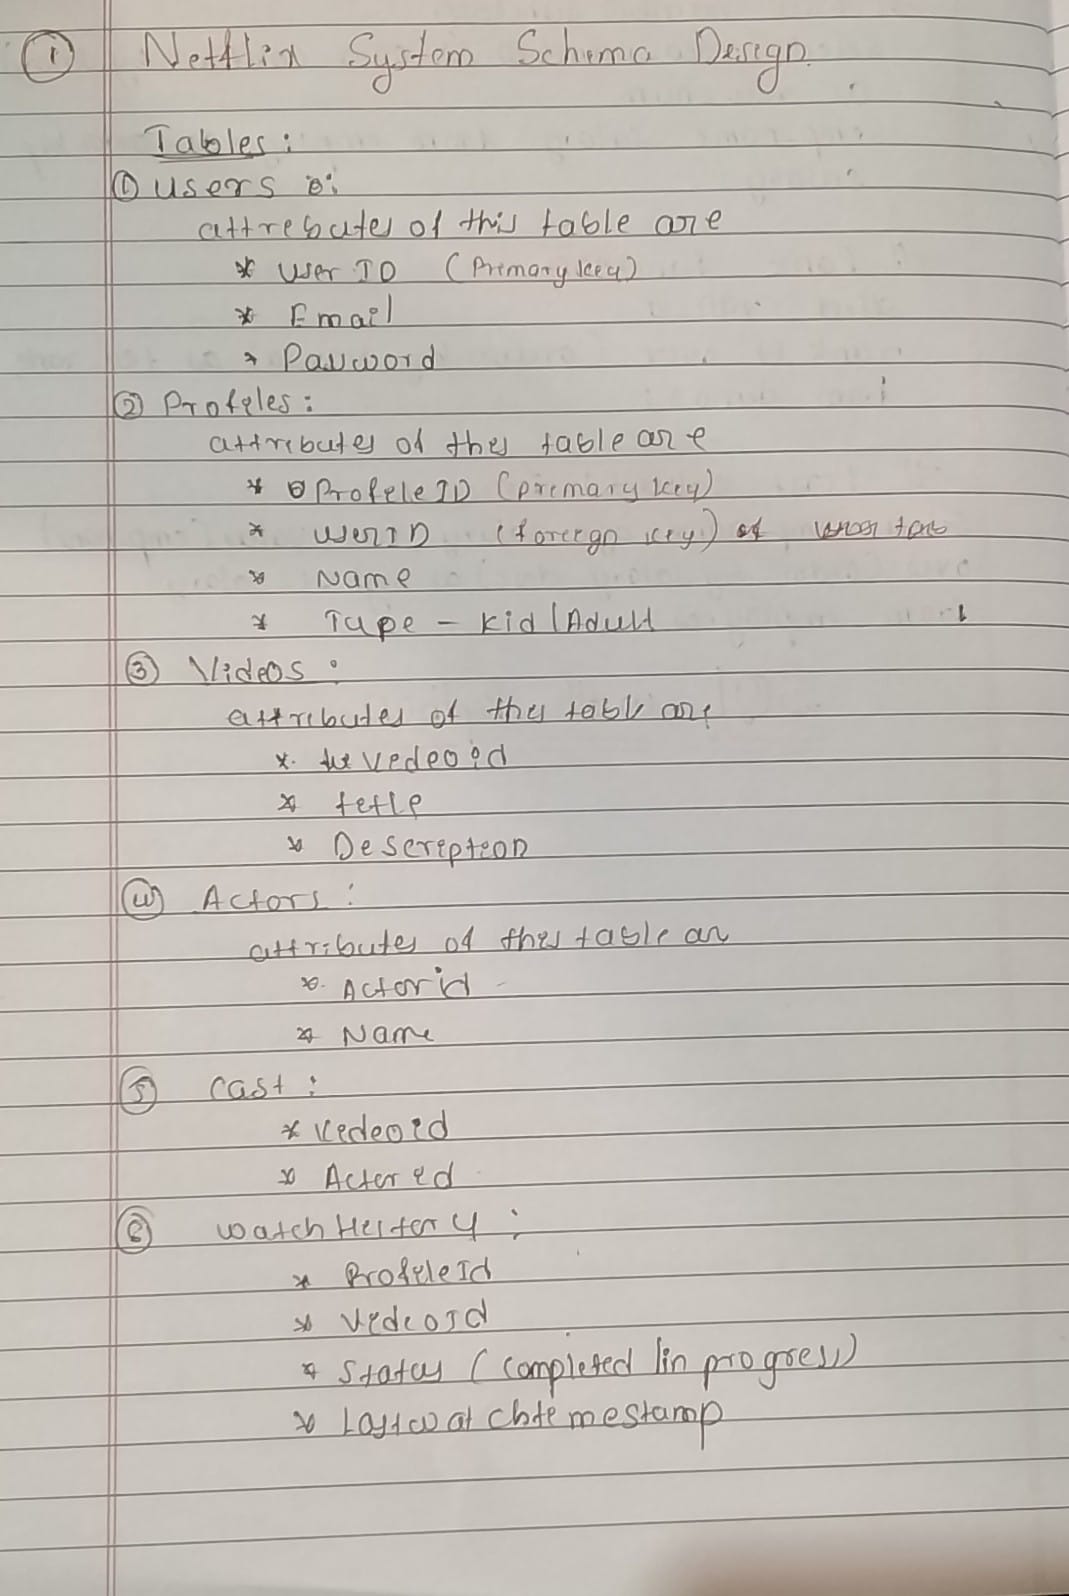 ① Netflix System Schema Design
Tables:
① users :
attrebutes of this table are
* User ID (Primary key)
* Email
* Password
② Profeles:
attributes of thes table are
* ProfeleID (primary key)
* UserID (foreegn key) of user
* Name
* Type - Kid/Adult
③ Videos:
attributes of thes table are
* vedeoid
* tetle
* Descreption
④ Actors:
attributes of thes table are
* Actorid
* Name
⑤ Cast:
* Vedeoid
* Actered
⑥ watch Hestory:
* ProfeleId
* VedeoId
* Status (completed/in progress)
* Lastwatchtemestamp